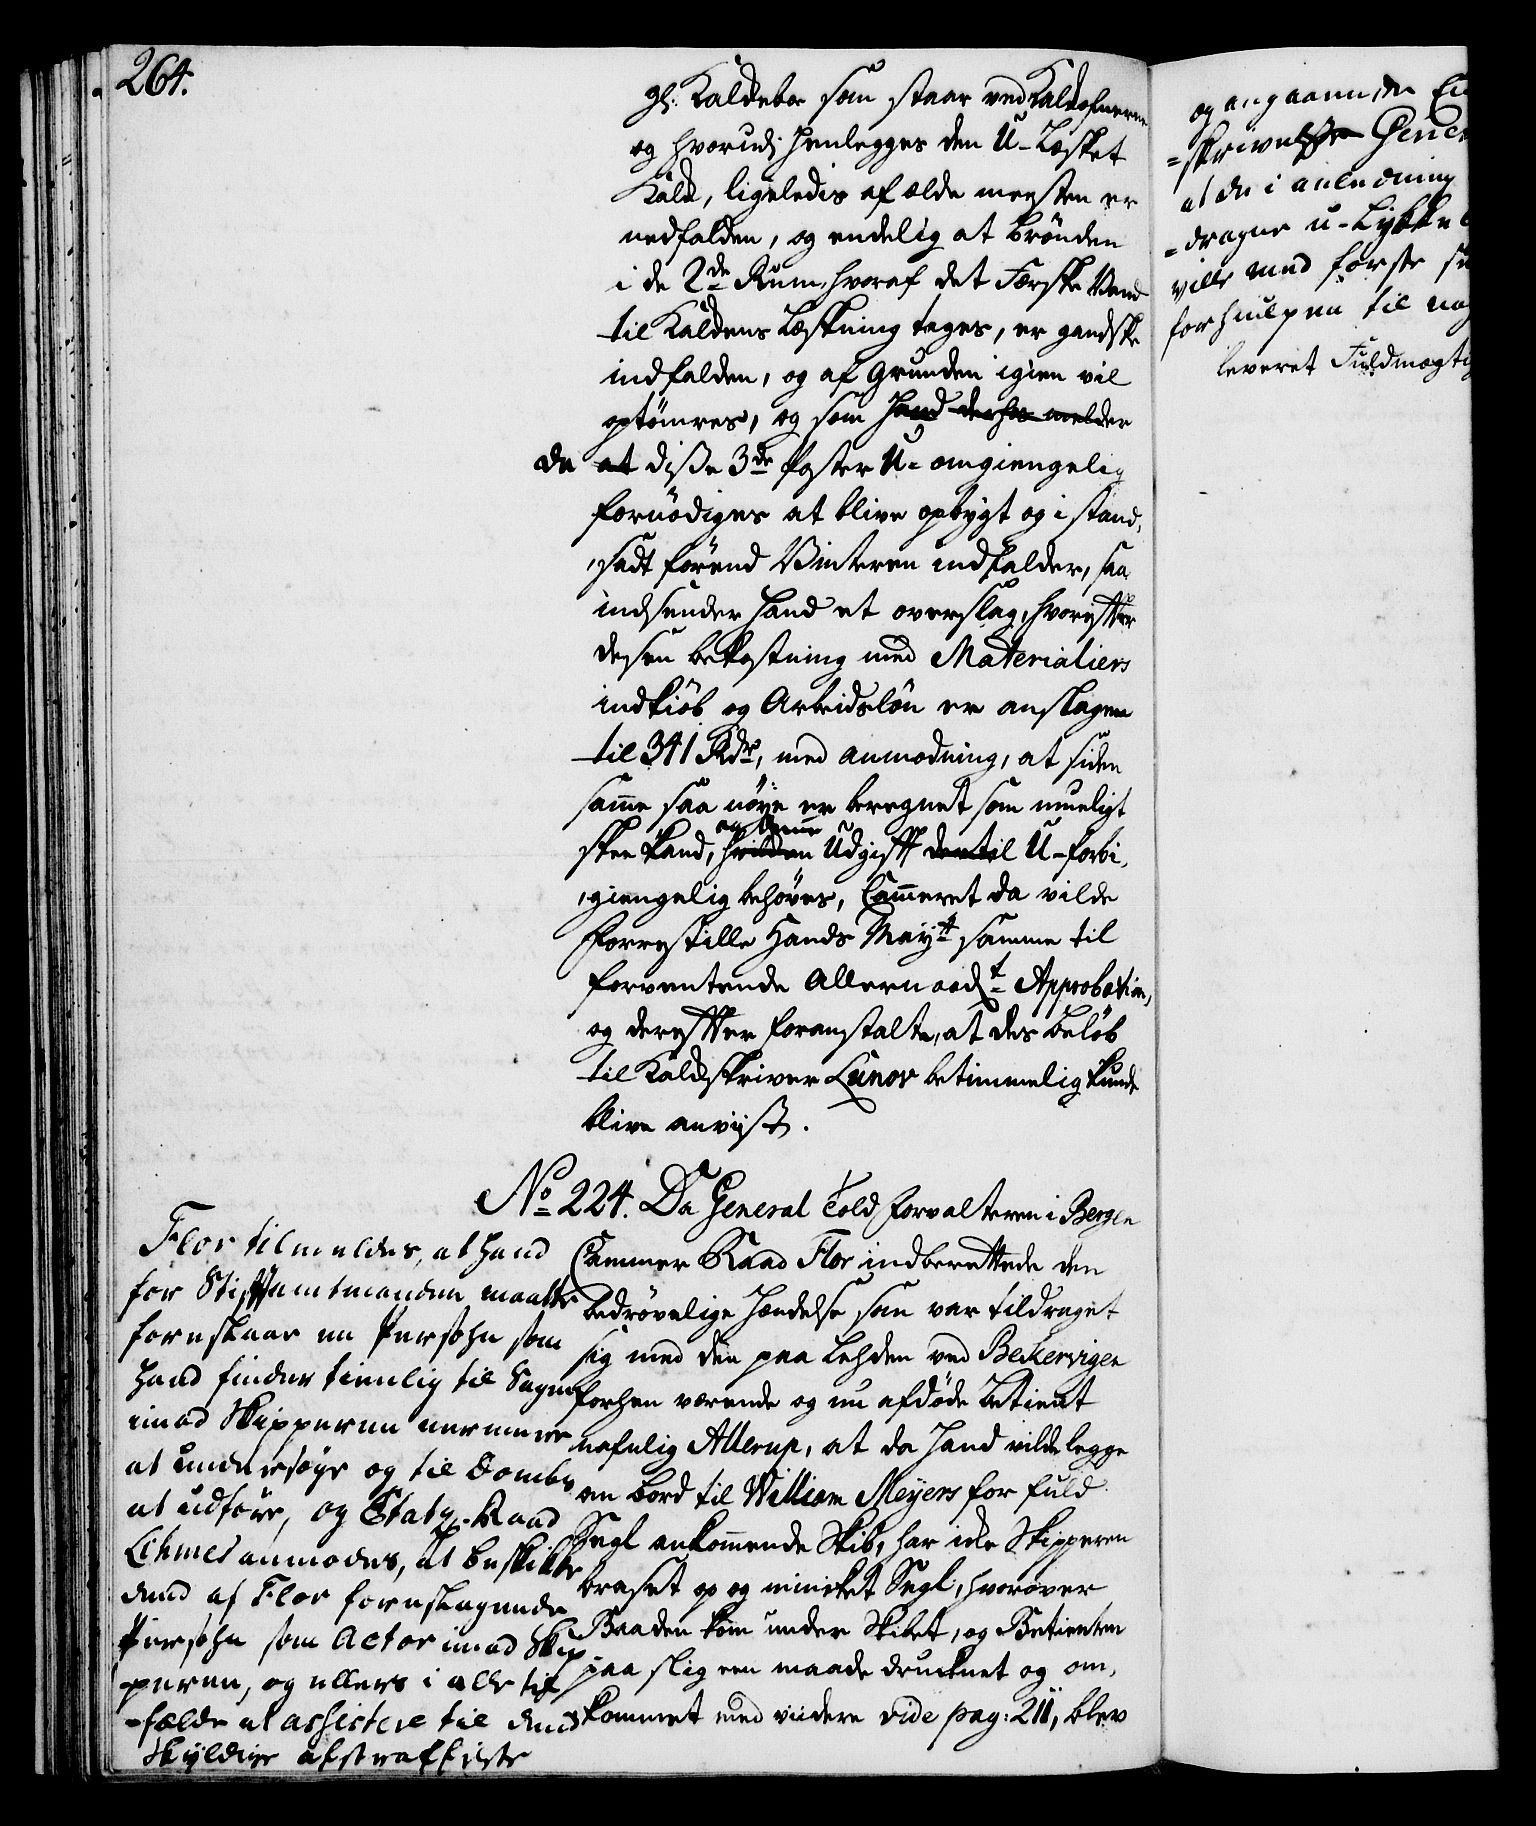 264.
gl: Kaldeboe som staar ved Kaldofnerne
og hvorudj henlegges den U-Læsket
Kald, ligeledis af ælde meesten er
nedfalden, og endelig at brönden
i de 2de Rum, hvoraf det Færske Vand
til Kaldens Læskning tages, er gandske
indfalden, og af Grunden igien vil
optömres, og som hand derhos melder
da at disse 3de Poster U-omgiengelig
fornödiges at blive opbygt og i stand,
,sadt förend Vinteren indfalder, saa
indsender Hand et overslag, hvorefter
dessen bekostning med Materialiers
indkiöb og Arbeidslön er anslagen
til 341 Rdr, med anmodning, at siden
samme saa nöye er beregnet som mueligt
skee kand, og denne
hvilden Udgift dertil U-forbi,
,giengelig behöves, Cammeret da vilde
forrestille Hands Mayt samme til
forventende Allernaadt Approbation,
og derefter foranstalte, at des belöb
til Kaldskriver Lunov betimmelig kunde
blive anviist.
No 224. Da General Toldforvalteren i Bergen
Cammer Raad Flor indberettede den
bedrövelige Hændelse som var tildraget
sig med den paa Lehden ved Bekervigen
forhen værende og nu afdöde betient
nafnlig Allerup, at da Hand vilde legge
om bord til William Meyers for fuld
Segl ankommende Skib, har iche Skipperen
braset op og mincket Segl, hvorover
Baaden kom under Skibet, og Betienten
paa slig een maade drucknet og om,
kommet med viidere vide pag: 211, blev
Flor tilmeldes, at hand
for Stiftamtmanden maatte
foreslaae en Persohn som
hand finder tienlig til Sagen
imod Skipperen nermere
at undersöge og til Dombs
at udföre, og Etatz-Raad
Lehmes anmodes, at beskikke
dend af Flor foreslagende
Persohn som Actor imod Skip
peren, og ellers i alle til
-fælde at assistere til dend
Skyldiges afstraffelse
og angaaende En
=skrivelse Gener
at de i anledning
=dragne u-Lykke
ville med förste
forhiulpen til
leveret Fuldmægtig